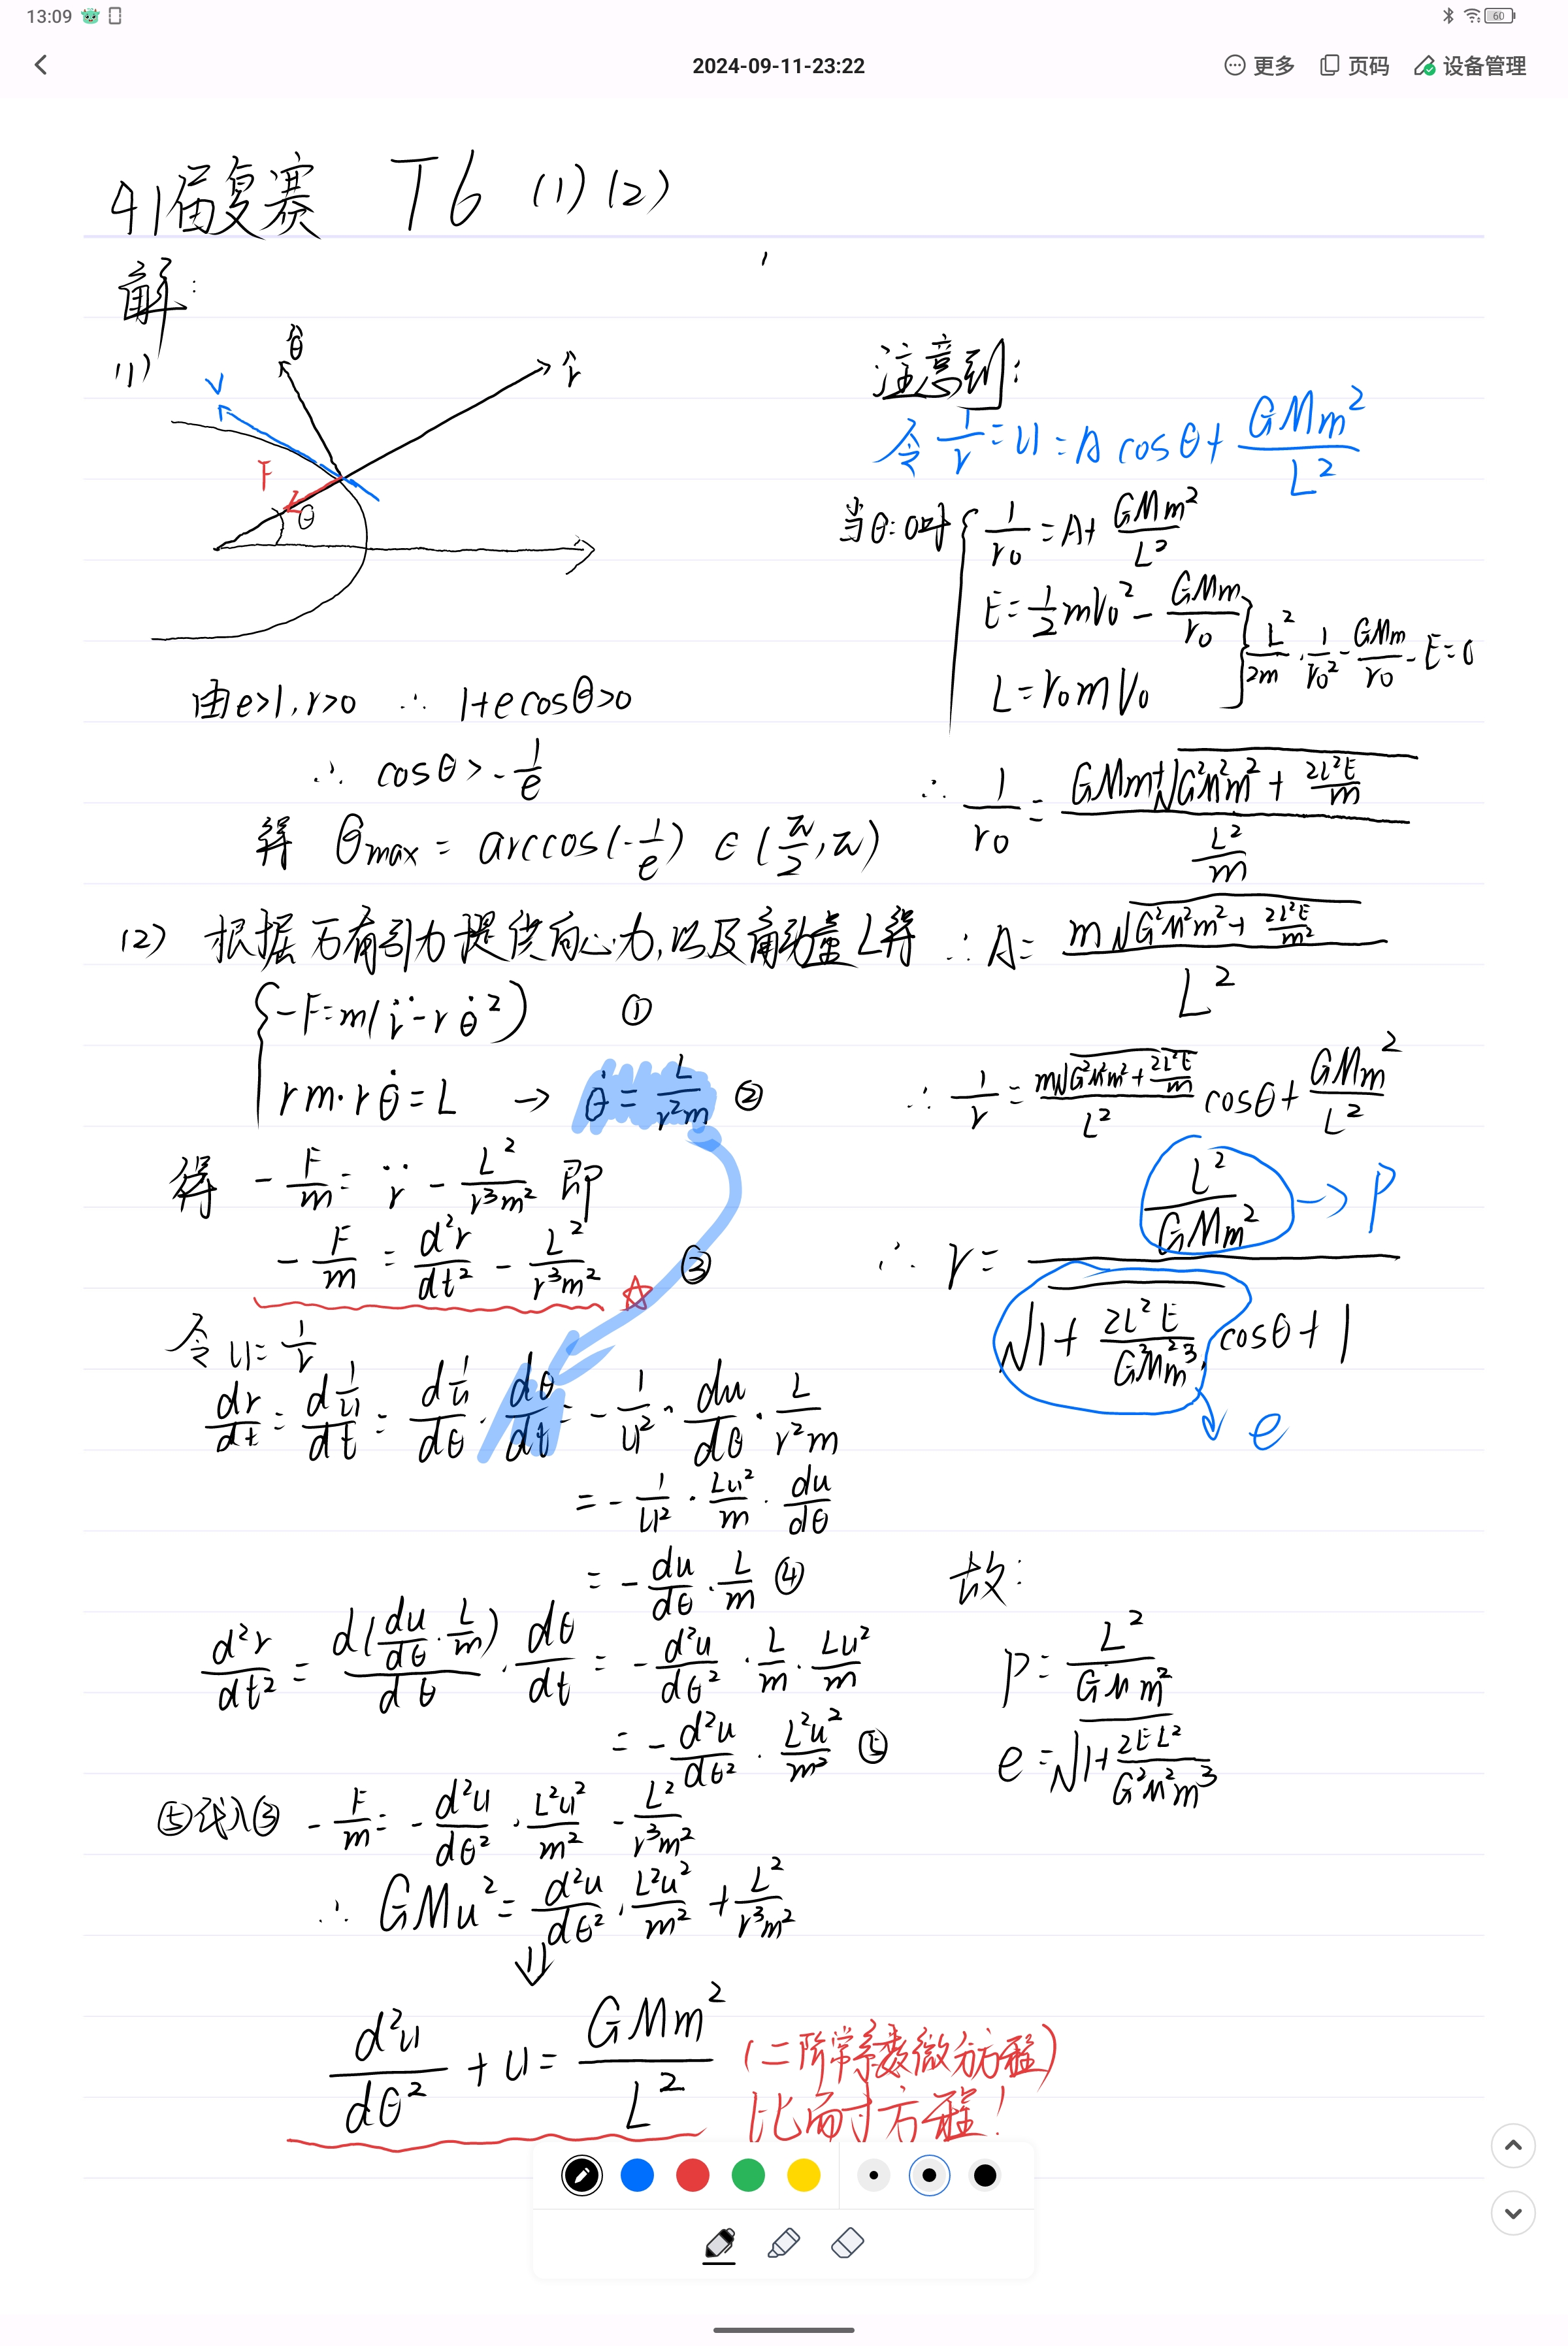 13:09
60
2024-09-11-23:22
更多 页码 设备管理
41届复赛 T6 (1)(2)
解:
(1)
θ̂
r̂
V
F
θ
由e>1,r>0 ∴ 1+ecosθ>0
∴ cosθ>-1/e
得 θmax = arccos(-1/e) ∈(π/2,π)
(2) 根据万有引力提供向心力,以及角动量L得
{-F=m(r̈-rθ̇²) ①
rm·rθ̇=L → θ̇=L/(r²m) ②
得 -F/m = r̈ - L²/(r³m²) 即
-F/m = d²r/dt² - L²/(r³m²) ③
令 u=1/r
dr/dt = d(1/u)/dt = d(1/u)/dθ · dθ/dt = -1/u² · du/dθ · L/(r²m)
= -1/u² · Lu²/m · du/dθ
= -du/dθ · L/m ④
d²r/dt² = d(du/dθ · L/m)/dθ · dθ/dt = -d²u/dθ² · L/m · Lu²/m
= -d²u/dθ² · L²u²/m² ⑤
⑤代入③ -F/m = -d²u/dθ² · L²u²/m² - L²/(r³m²)
∴ GMu² = d²u/dθ² · L²u²/m² + L²/(r³m²)
⇓
d²u/dθ² + u = GMm²/L² (二阶常系数微分方程)
比耐方程!
注意到:
令 1/r = u = A cosθ + GMm²/L²
当θ=0时 { 1/r₀ = A + GMm²/L²
E = 1/2 mV₀² - GMm/r₀
L = r₀mV₀ } L²/2m · 1/r₀² - GMm/r₀ - E = 0
∴ 1/r₀ = (GMm+√(G²M²m² + 2L²E/m))/(L²/m)
∴ A = m√(G²M²m² + 2L²E/m²)/L²
∴ 1/r = m√(G²M²m² + 2L²E/m)/L² cosθ + GMm²/L²
∴ r = (L²/GMm²)/(√(1 + 2L²E/(G²M²m³)) cosθ + 1)
→ P
e
故:
P = L²/(GMm²)
e = √(1 + 2EL²/(G²M²m³))